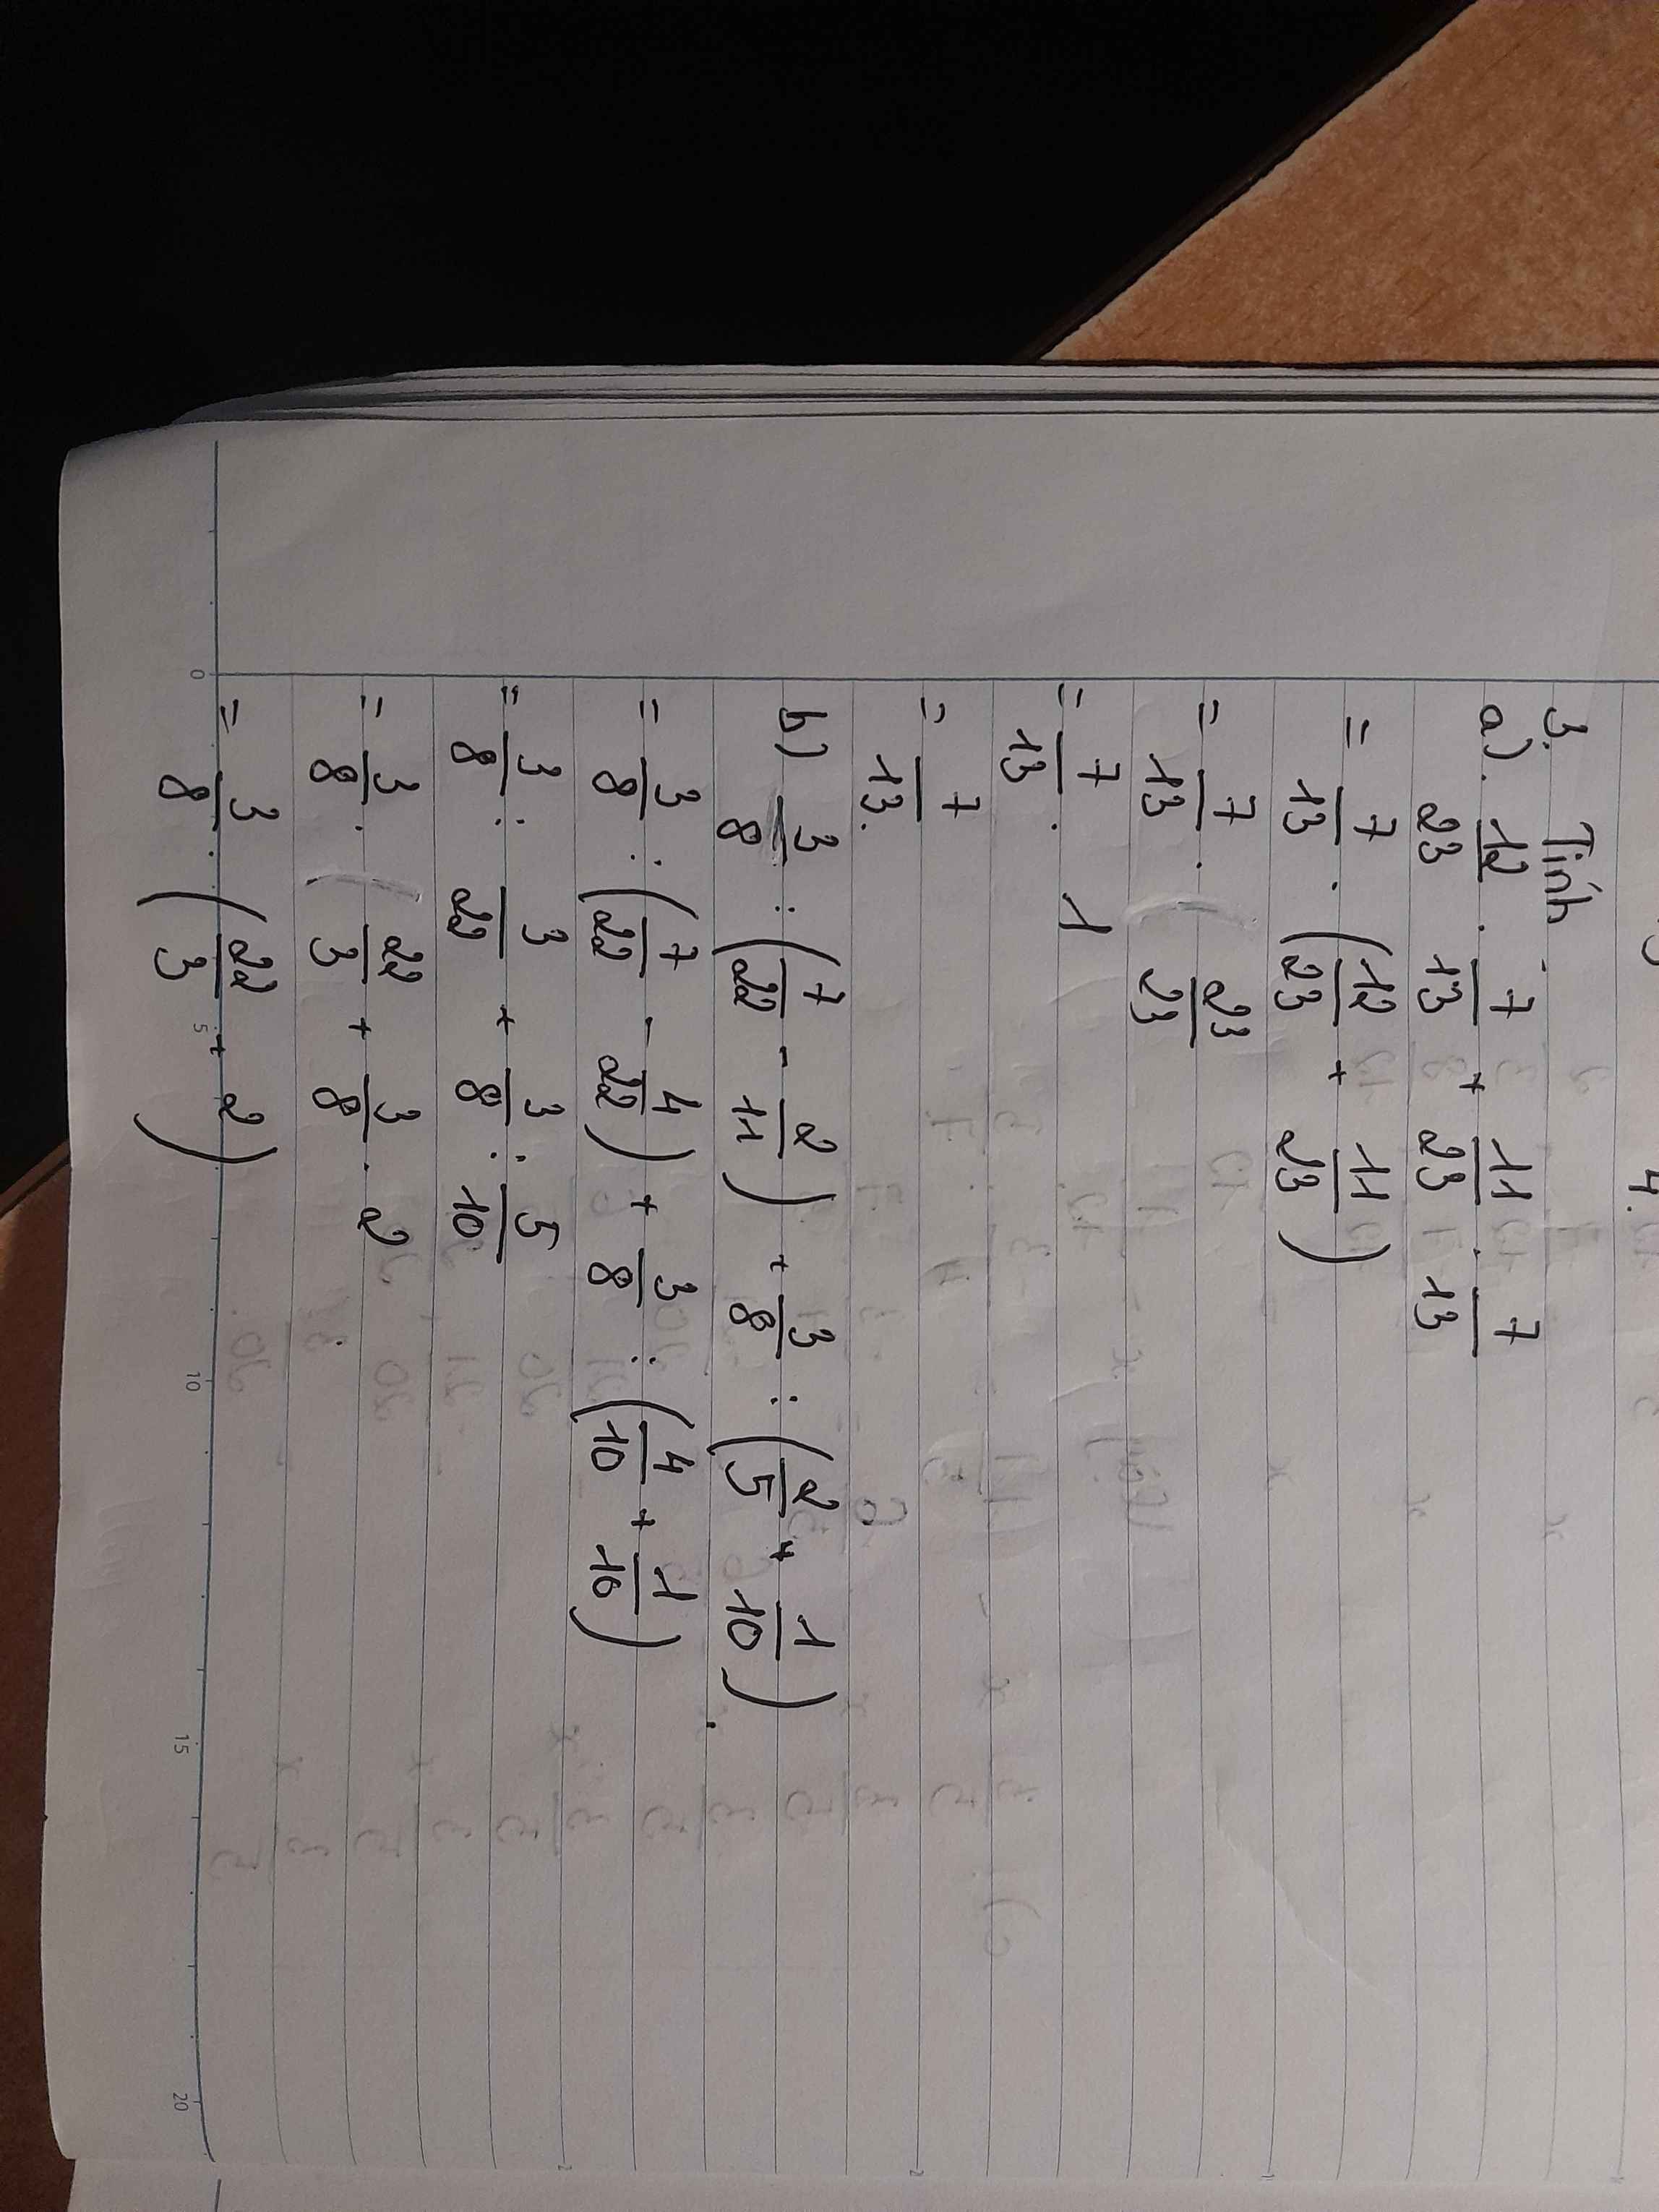 3. Tính
a). 12/23 . 7/13 + 11/23 . 7/13
= 7/13 . (12/23 + 11/23)
= 7/13 . 23/23
= 7/13 . 1
= 7/13.
b) 3/8 : (7/22 - 2/11) + 3/8 : (2/5 + 1/10).
= 3/8 : (7/22 - 4/22) + 3/8 : (4/10 + 1/10)
= 3/8 : 3/22 + 3/8 : 5/10
= 3/8 . 22/3 + 3/8 . 2
= 3/8 . (22/3 + 2)
0 5 10 15 20